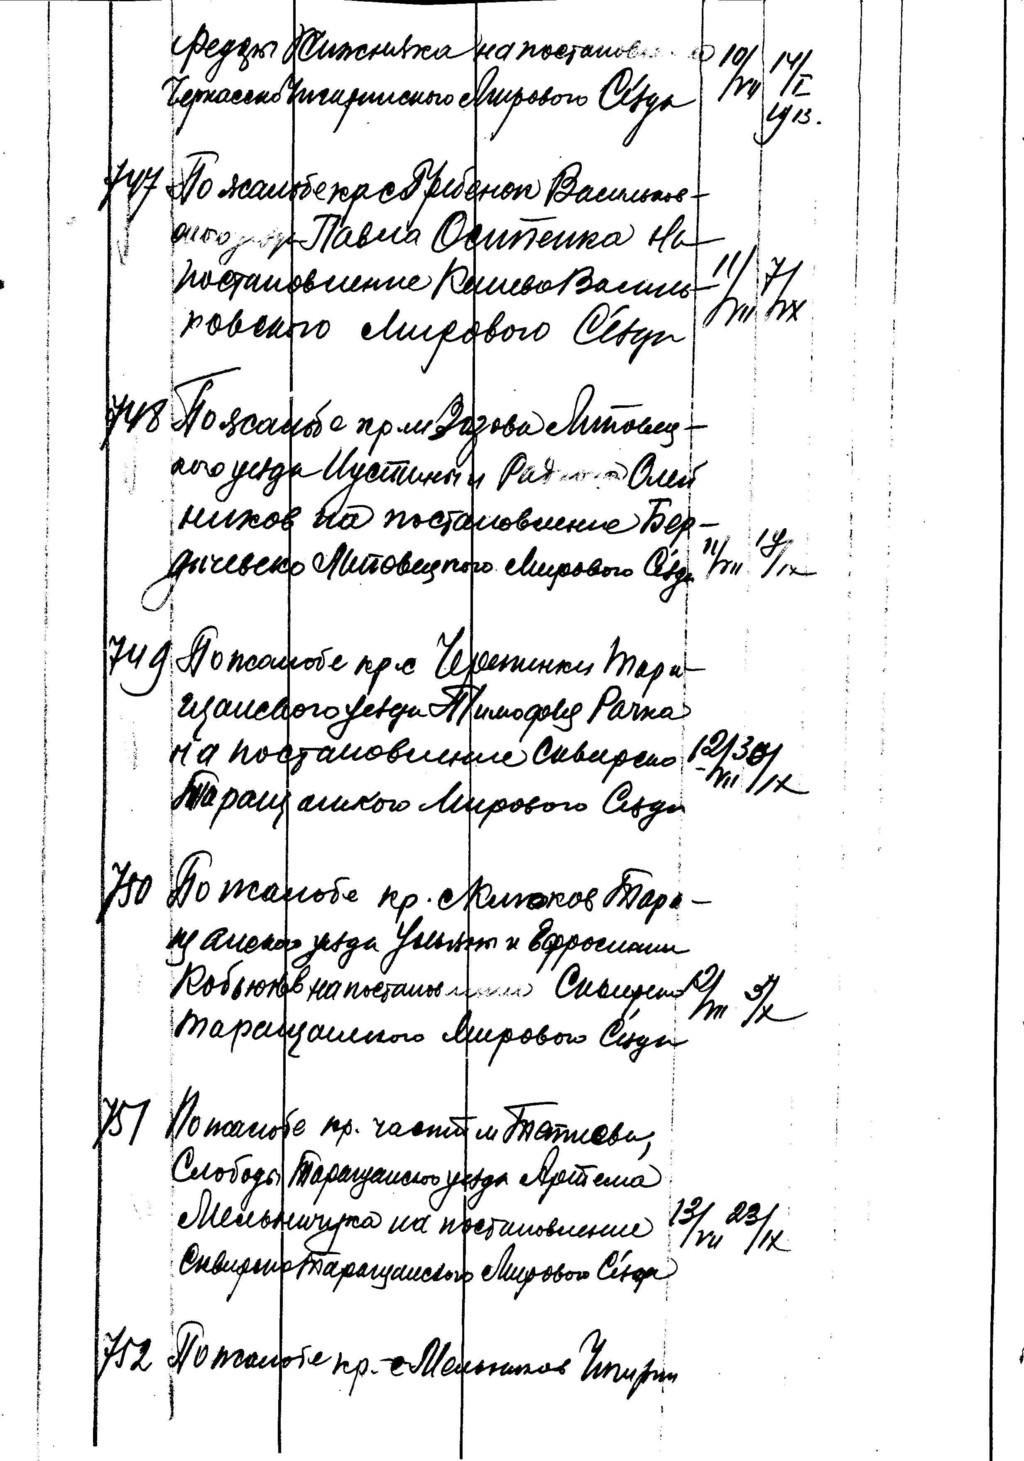 Федоры Хижняка на постановл
Черкасско Чигиринского Мирового Съезда 10/VII 14/I 1913.
747 По жалобе кр с Гребенок Васильков-
ского Павла Осипенка на
постановление Киево Василь-
ковского Мирового Съезда 11/VII 7/IX
748 По жалобе кр м Зозова Липовец-
кого уезда Иустины и Олей
ников на постановление Бер-
дичевско Липовецкого Мирового Съезда 11/VII 19/IX
749 По жалобе кр с Черепинки Тара-
щанского уезда Тимофея Рачка
на постановление Сквирско 12/VII 30/IX
Таращанского Мирового Съезда
750 По жалобе кр. с Клюков Тара-
щанского уезда Ульяны и Ефросинии
Кобзюков на постановление Сквирско 12/VII 5/X
Таращанского Мирового Съезда
751 По жалобе кр. части м Тетиева,
Слободы Таращанского уезда Артема
Мельничука на постановление 13/VII 23/IX
Сквирско Таращанского Мирового Съезда
752 По жалобе кр. с Мельников Чигирин